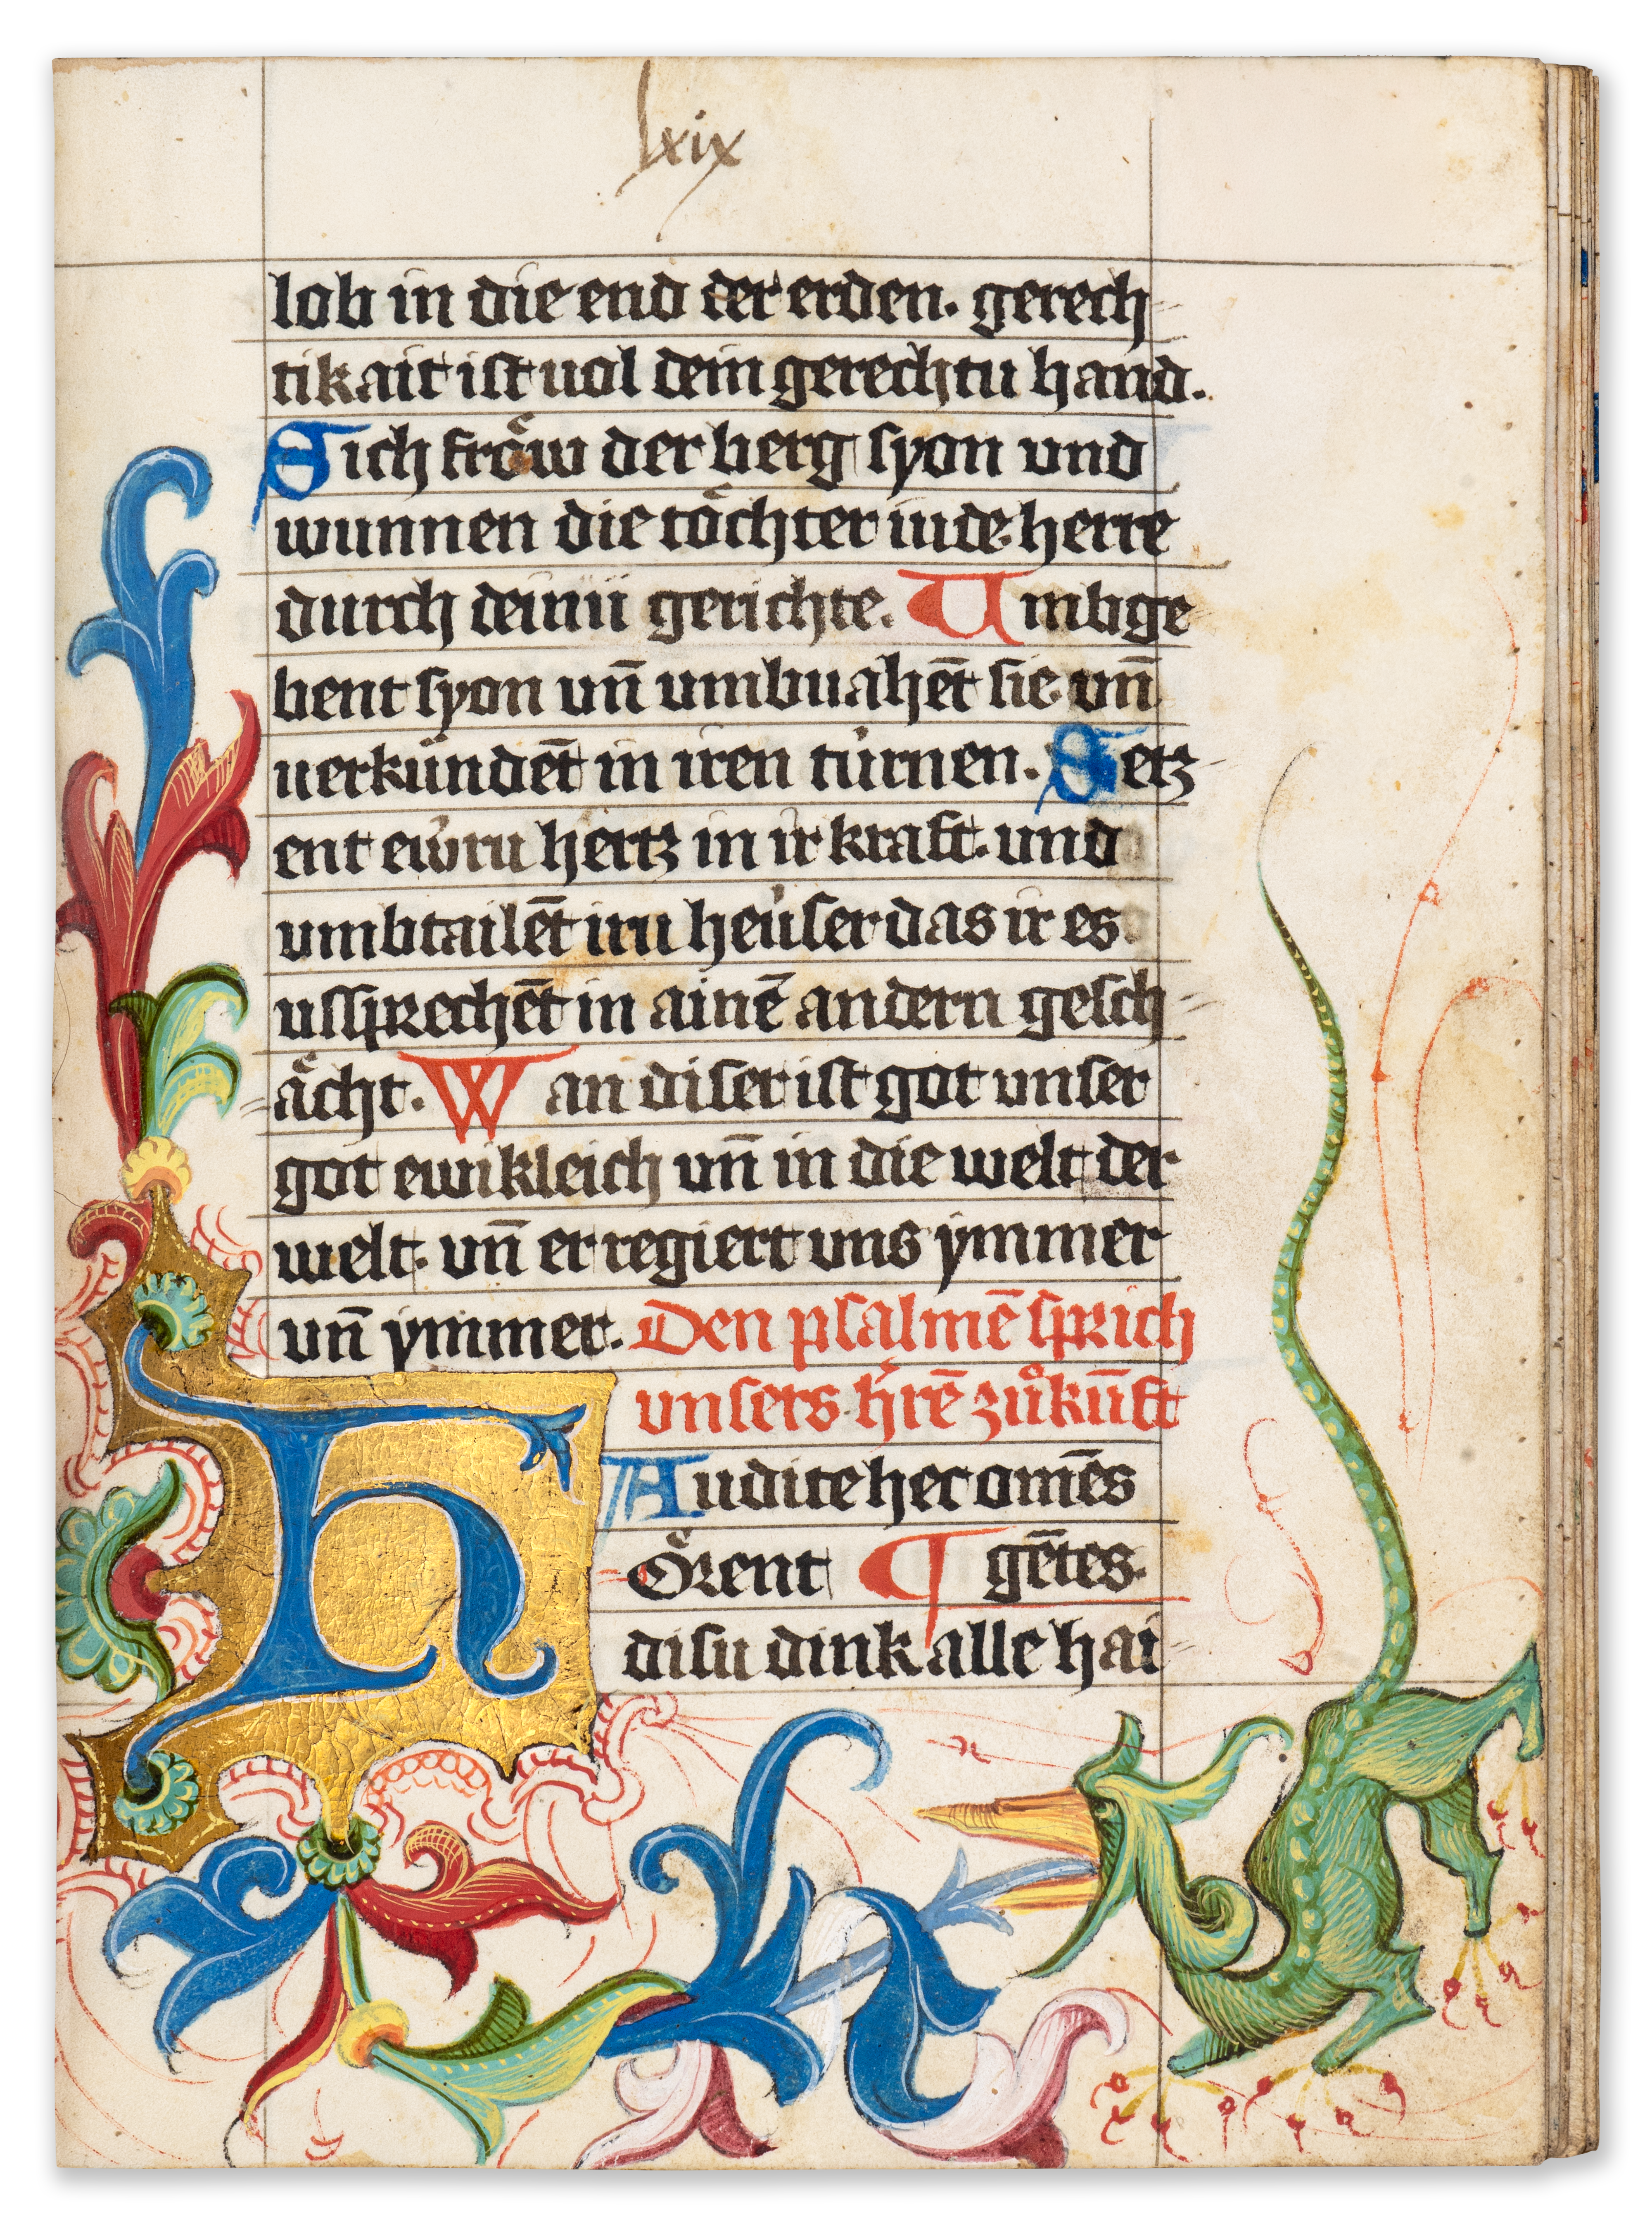 lxix
lob in die end der erden. gerech
tikait ist uol dein gerechtu hand.
Sich fröw der berg syon und
wunnen die töchter iude. herre
durch deinü gerichte. Umbge
bent syon vn̄ umbuahēt sie. vn̄
uerkündēt in iren türnen. Setz
ent ewru hertz in ir kraft. und
umbtailēt iru heuser das ir es
ussprechēt in ainē andern gesch
ächt. Wan diser ist got unser
got ewikleich vn̄ in die welt der
welt. vn̄ er regiert uns ymmer
vn̄ ymmer. Den psalmē sprich
unsers hʼrē zůkūft
Audite hec omēs
hörent ¶ gētes.
disu dink alle hai